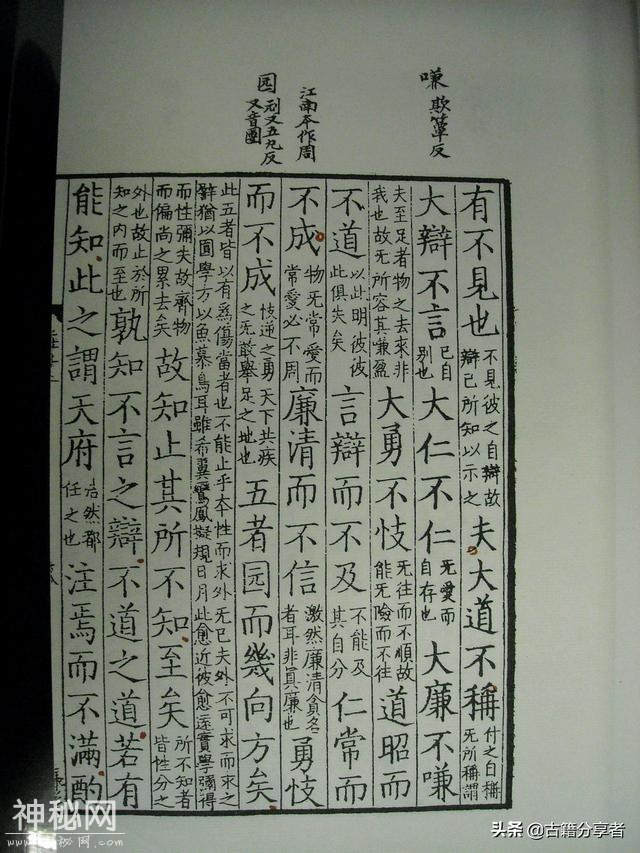 嗛 欺簟反
江南本作周
园 刓又五丸反又音團
有不見也不見彼之自辯故辯己所知以示之夫大道不稱付之自稱无所稱謂
大辯不言已自別也大仁不仁无愛而自存也大廉不嗛
夫至足者物之去來非我也故无所容其嗛盈大勇不忮无往而不順故能无險而不往道昭而
不道以此明彼彼此俱失矣言辯而不及不能及其自分仁常而
不成物无常愛而常愛必不周廉清而不信激然廉清貪名者耳非真廉也勇忮
而不成忮逆之勇天下共疾之无敢舉足之地也五者园而幾向方矣
此五者皆以有為傷當者也不能止乎本性而求外无已夫外不可求而求之
辟猶以圓學方以魚慕鳥耳雖希翼鸞鳳擬規日月此愈近彼愈遠實學彌得
而性彌失故齊物而偏尚之累去矣故知止其所不知至矣所不知者皆性分之
外也故止於所知之內而至也孰知不言之辯不道之道若有
能知此之謂天府浩然都任之也注焉而不滿酌
神秘网
www.cnwmw.com
头条 @古籍分享者